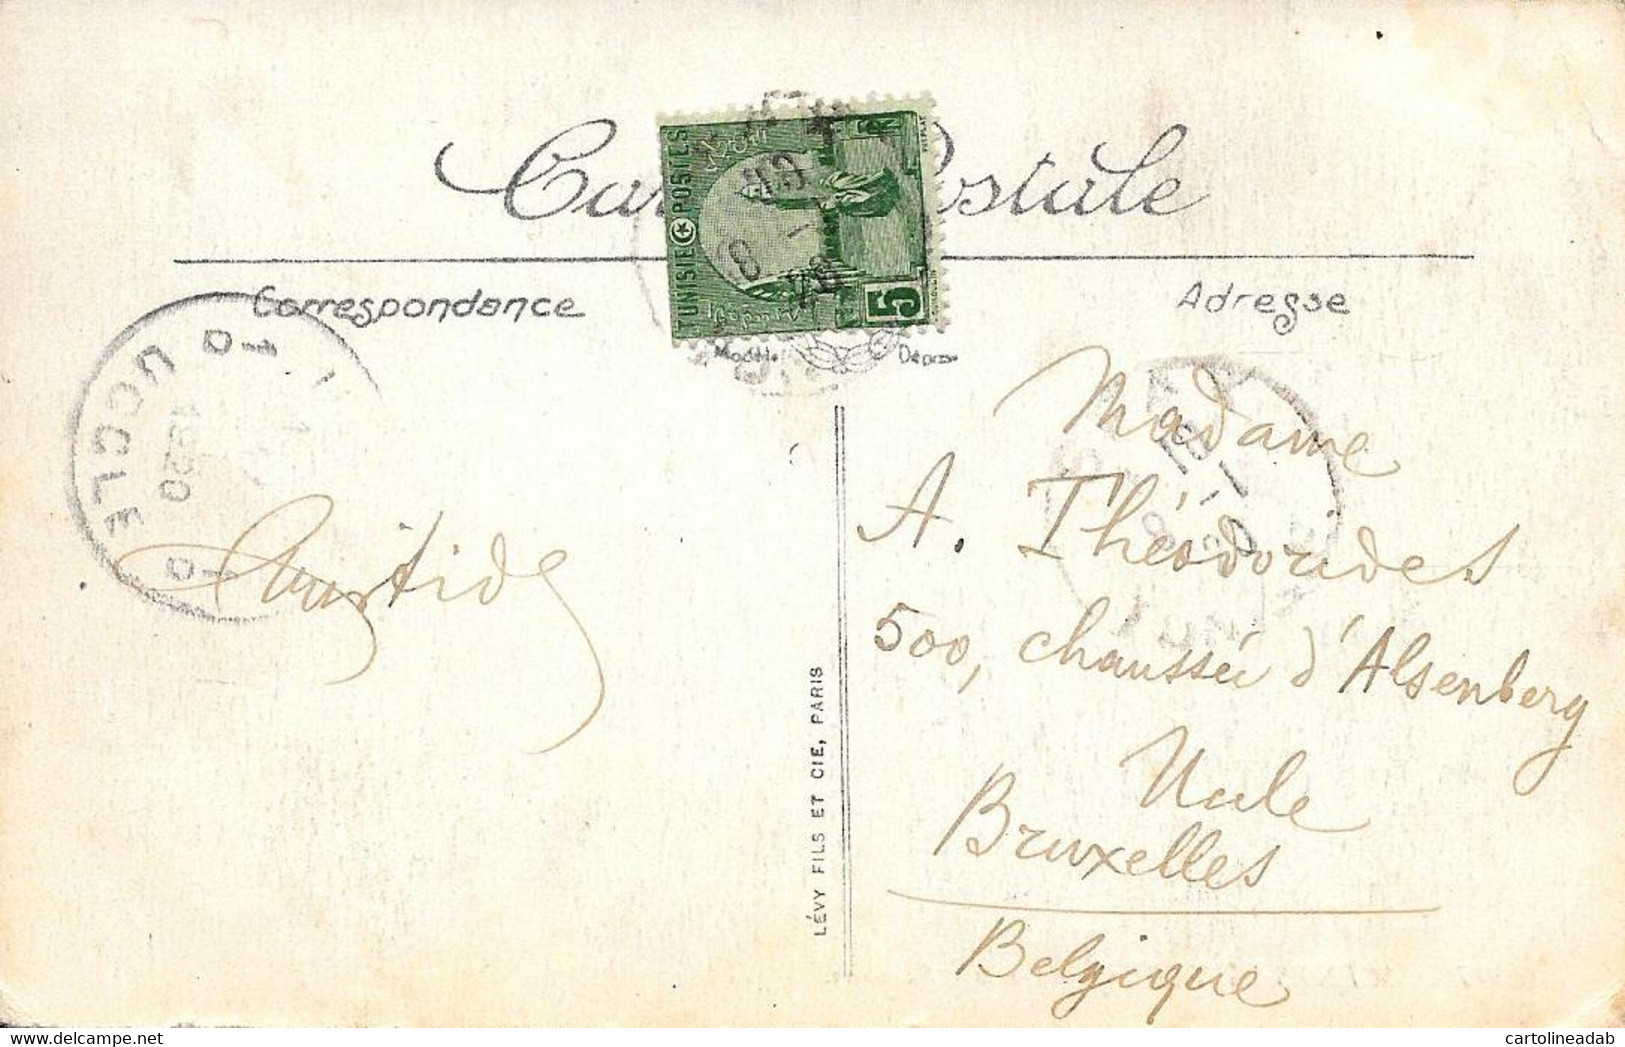 Carte Postale
TUNISIE POSTES
5
Correspondance
Adresse
Modèle
Déposé
UCCLE
Aristide
Madame
A. Théodorides
500, chaussée d'Alsenberg
Uccle
Bruxelles
Belgique
LÉVY FILS ET CIE, PARIS
cartolineadab